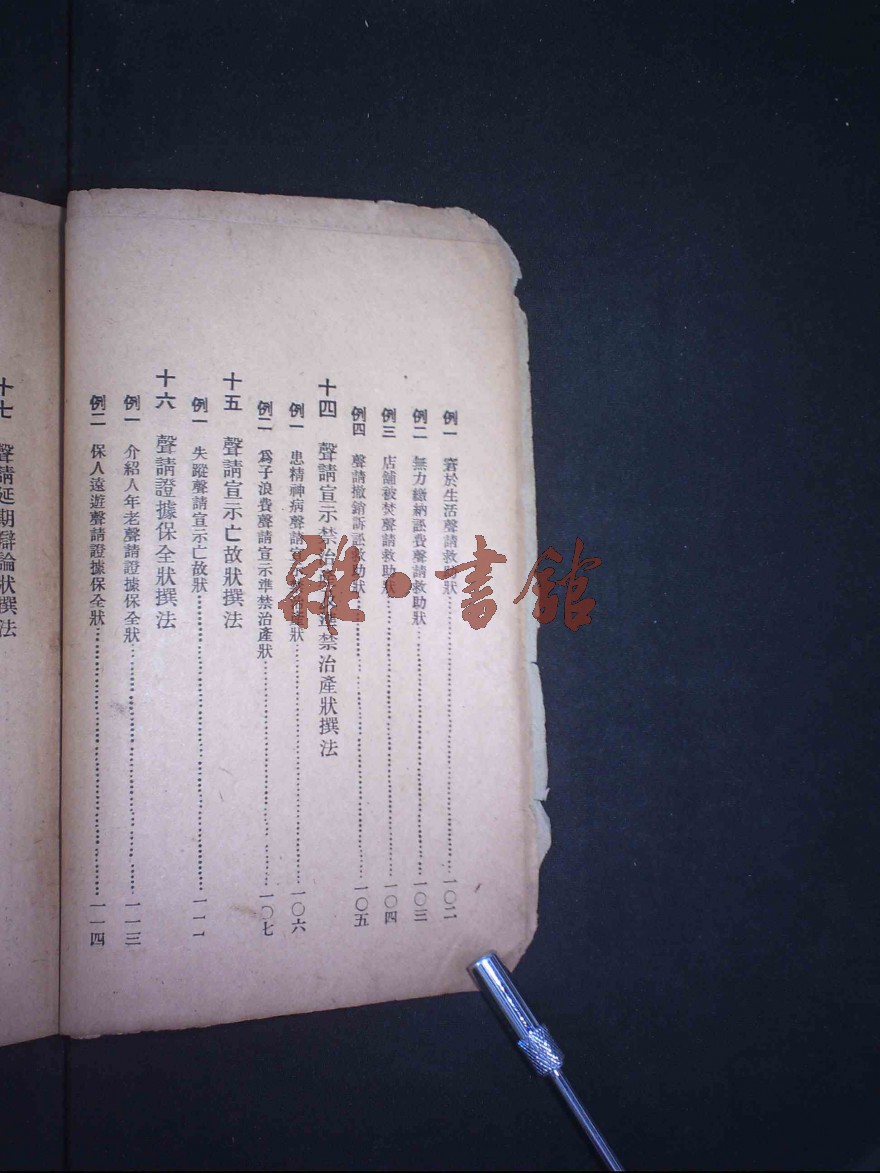 例一　窘於生活聲請救助狀……一〇二
例二　無力繳納訟費聲請救助狀……一〇三
例三　店舖被焚聲請救助狀……一〇四
例四　聲請撤銷訴訟救助狀……一〇五
十四　聲請宣示禁治產及準禁治產狀撰法
例一　患精神病聲請宣示禁治產狀……一〇六
例二　爲子浪費聲請宣示準禁治產狀……一〇七
十五　聲請宣示亡故狀撰法
例一　失蹤聲請宣示亡故狀……一一一
十六　聲請證據保全狀撰法
例一　介紹人年老聲請證據保全狀……一一三
例二　保人遠遊聲請證據保全狀……一一四
十七　聲請延期辯論狀撰法
雜·書館